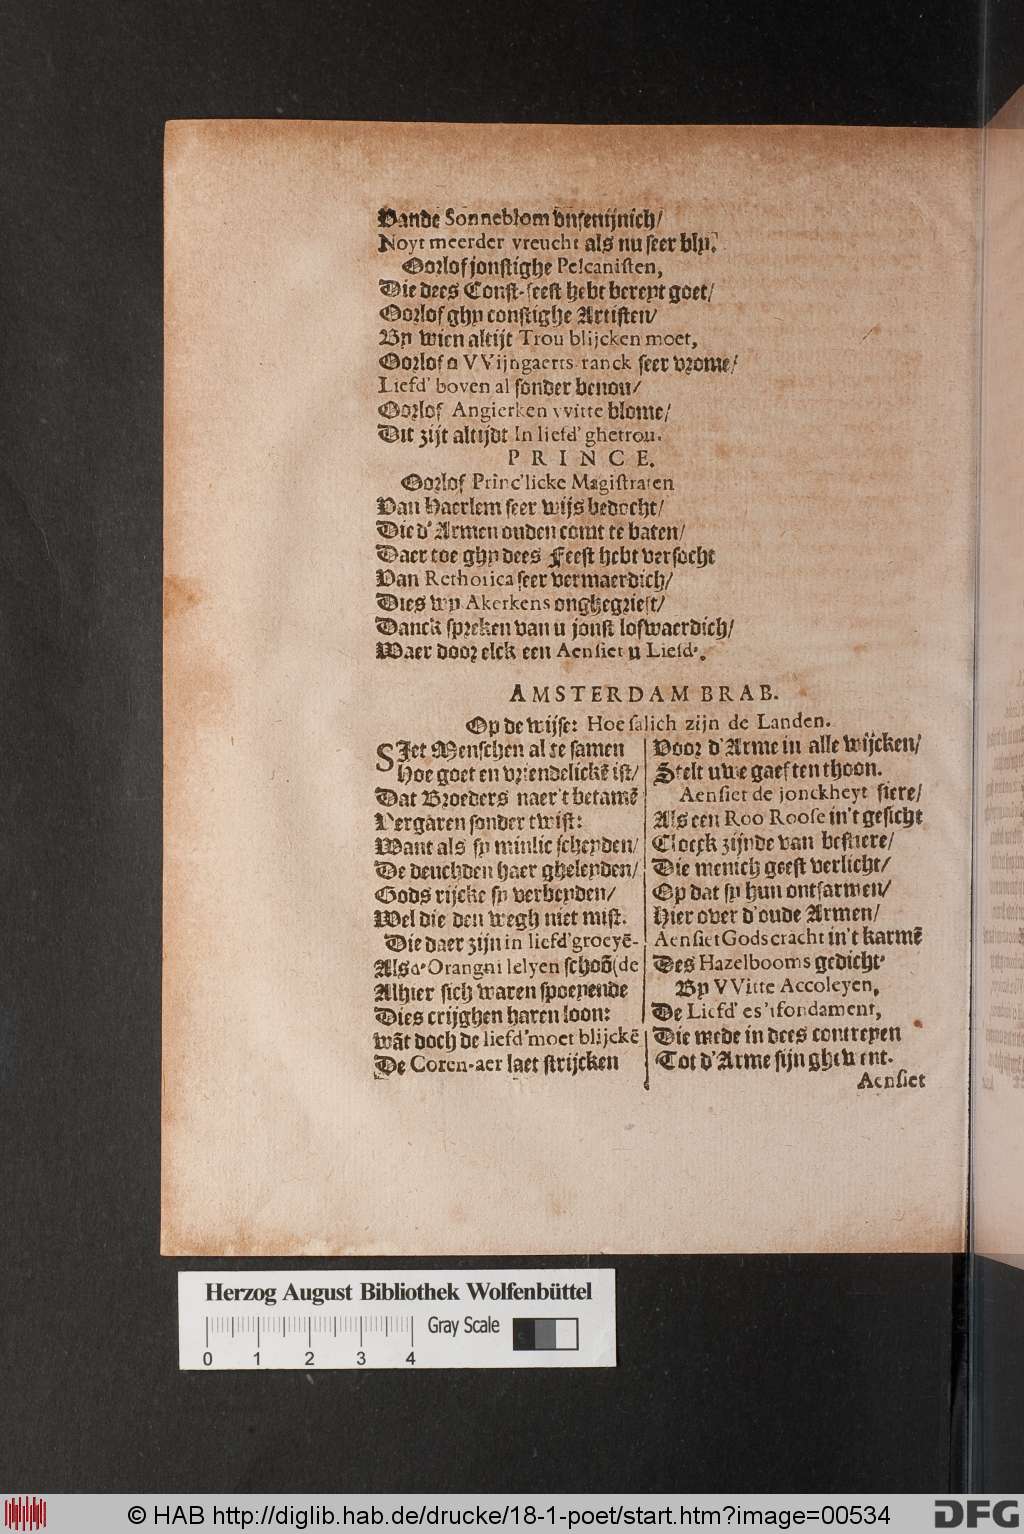 Vande Sonneblom vnfenijnich/
Noyt meerder vreucht als nu seer bly.
Oorlof jonstighe Pelcanisten,
Die dees Const-feest hebt bereyt goet/
Oorlof ghy constighe Artisten/
By wien altijt Trou blijcken moet,
Oorlof o VVijngaerts ranck seer vrome/
Liefd' boven al sonder benou/
Oorlof Angierken vvitte blome/
Dit zijt altijdt In liefd' ghetrou.
PRINCE.
Oorlof Princ'licke Magistraten
Van Haerlem seer wijs bedocht/
Die d'Armen ouden comt te baten/
Daer toe ghy dees Feest hebt versocht
Van Rethorica seer vermaerdich/
Dies wy Akerkens onghegriest/
Danck spreken van u jonst lofwaerdich/
Waer door elck een Aensiet u Liefd'.
AMSTERDAM BRAB.
Op de wijse: Hoe salich zijn de Landen.
SIet Menschen al te samen
Hoe goet en vriendelickē ist/
Dat Broeders naer't betamē
Vergaren sonder twist:
Want als sy minlic scheyden/
De deuchden haer gheleyden/
Gods rijcke sy verbeyden/
Wel die den wegh niet mist.
Die daer zijn in liefd' groeyē-
Als d'Orangni lelyen schoō (de
Alhier sich waren spoeyende
Dies crijghen haren loon:
wāt doch de liefd' moet blijckē
De Coren-aer laet strijcken
Voor d'Arme in alle wijcken/
Stelt uwe gaef ten thoon.
Aensiet de jonckheyt siere/
Als een Roo Roose in't gesicht
Cloeck zijnde van bestiere/
Die menich geest verlicht/
Op dat sy hun ontfarmen/
Hier over d'oude Armen/
Aensiet Gods cracht in't karmē
Des Hazelbooms gedicht.
By VVitte Accoleyen,
De Liefd' es 't fondament,
Die mede in dees contreyen
Tot d'Arme sijn ghewent.
Aensiet
Herzog August Bibliothek Wolfenbüttel
Gray Scale
0 1 2 3 4
© HAB http://diglib.hab.de/drucke/18-1-poet/start.htm?image=00534
DFG